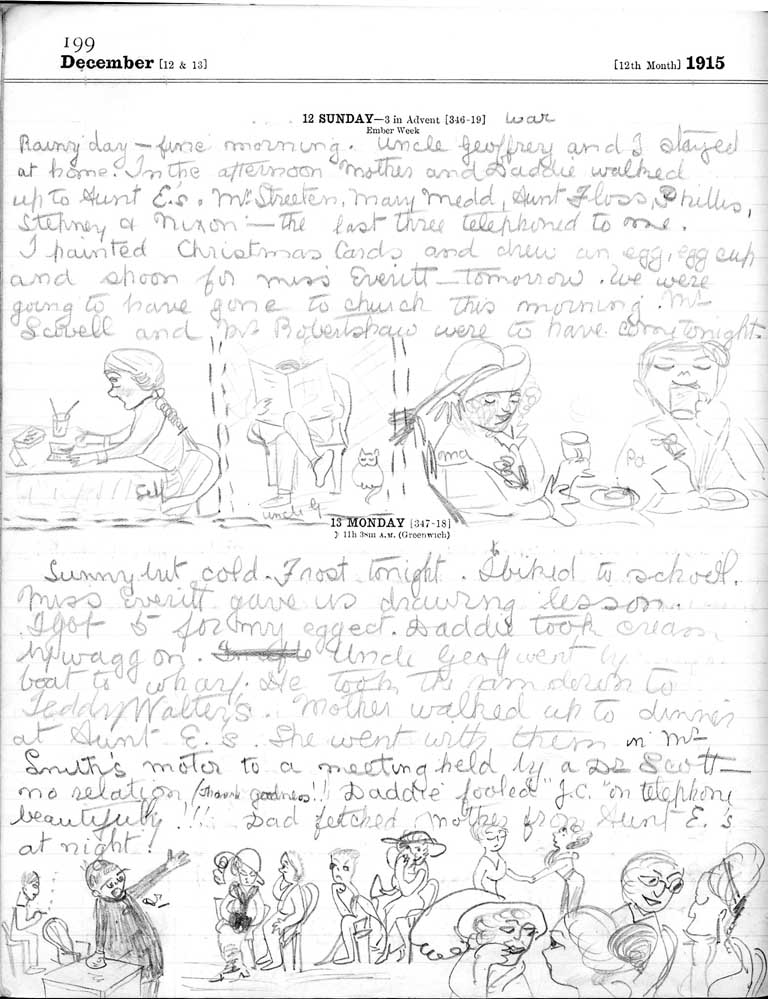 199
December [12 & 13] [12th Month] 1915
12 SUNDAY—3 in Advent [346-19] war
Ember Week
Rainy day – fine morning. Uncle Geoffrey and I stayed
at home. In the afternoon Mother and Daddie walked
up to Aunt E.'s. Mr Streeten, Mary Medd, Aunt Floss, Phillis,
Stepney & Nixon – the last three telephoned to me.
I painted Christmas Cards and drew an egg, egg cup
and spoon for miss Everitt – tomorrow. We were
going to have gone to church this morning. Mr
Scovell and Mr Robertshaw were to have come tonight.
Self
uncle G
ma
Pa
13 MONDAY [347-18]
☽ 11h 38m A.M. (Greenwich)
Sunny but cold. Frost tonight. I biked to school.
Miss Everitt gave us drawing lesson.
I got 5 for my egg ect. Daddie took cream
by waggon. Uncle Geof went by
boat to wharf. He took the ram down to
Teddy Walter's. Mother walked up to dinner
at Aunt E.'s. She went with them in Mr
Smith's motor to a meeting held by a Dr Scott –
no relation (thank goodness!!) Daddie "fooled" J.C. on telephone
beautifully!!!! Dad fetched Mother from Aunt E.'s
at night!